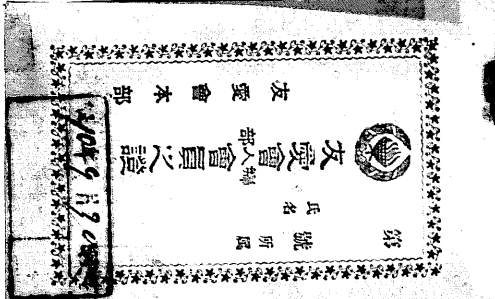 第　號
所屬
氏名
友愛會婦人部會員之證
友愛會本部